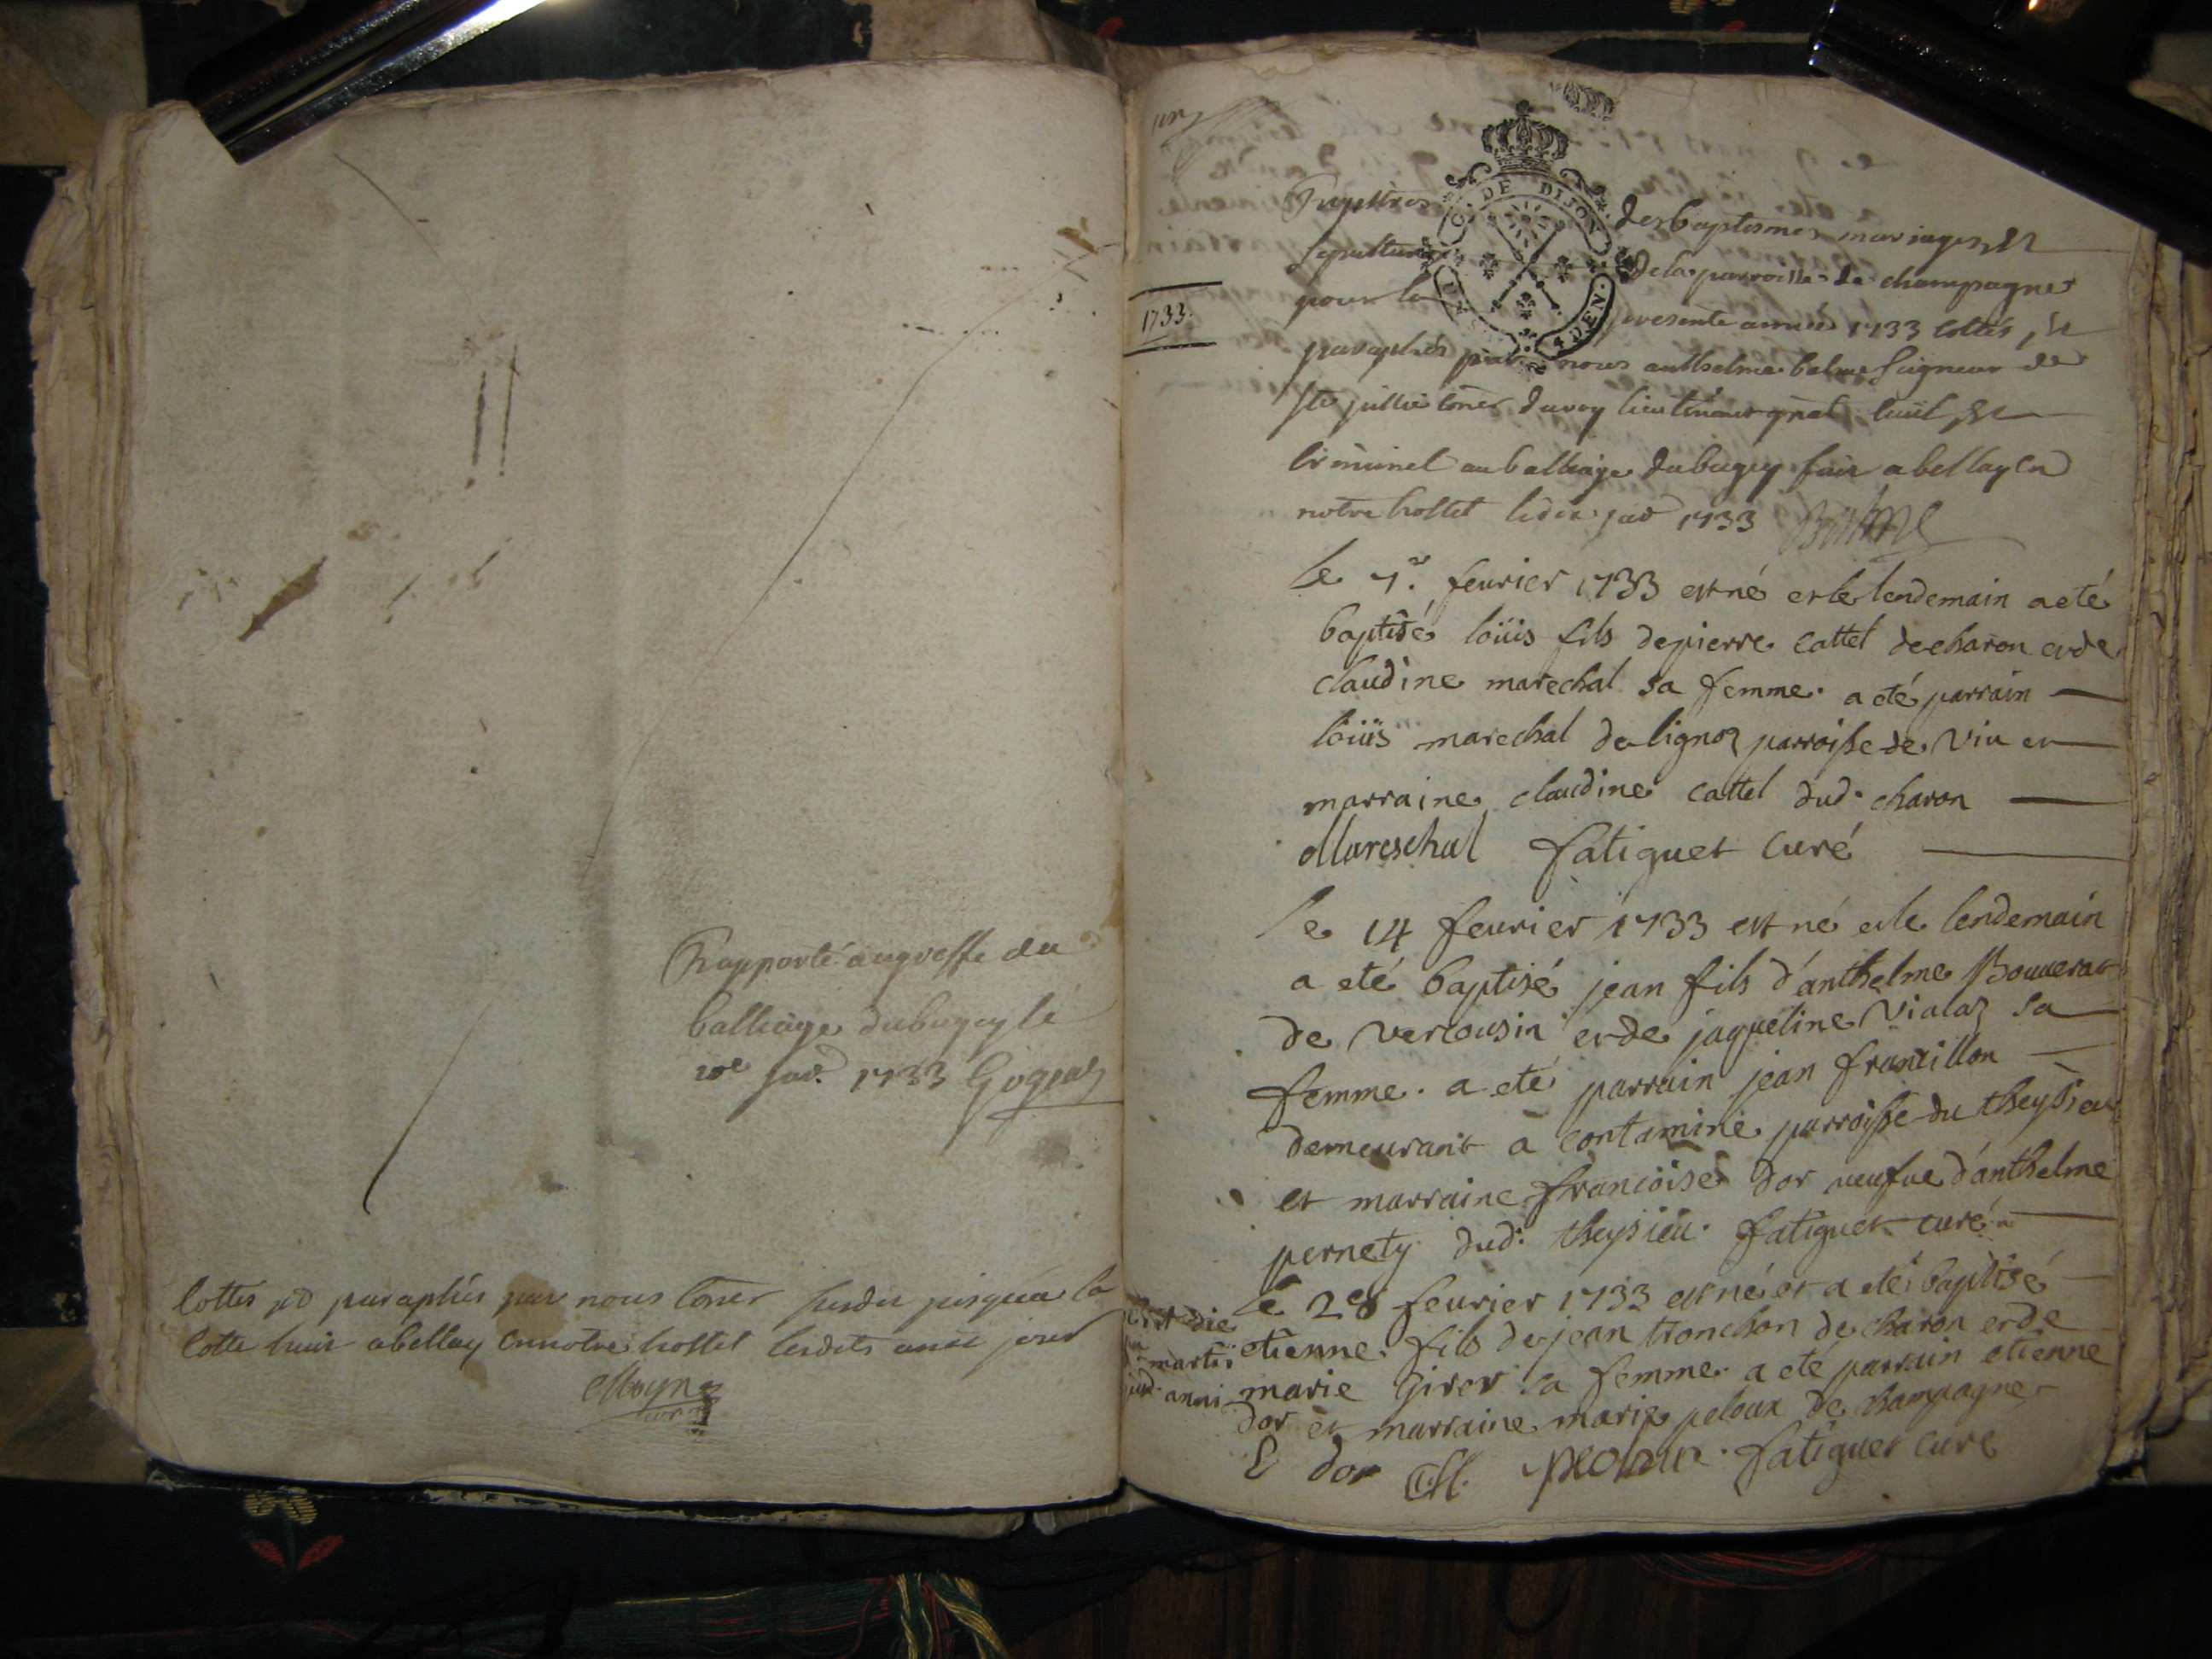 Rapporté au greffe du
balliage du bugey le
10e jav. 1733
Cottés et paraphés par nous
cotte huit a belley en notre hostel lesdits an et jour
1733.
G. DE DIJON
DEN.
Registres des baptesmes mariages et
sepultures de la parroisse de champagne
pour la presente année 1733 cottés et
paraphés par nous anthelme balme seigneur de
ste jullie coner du roy lieutenant gnal civil et
criminel au balliage du bugey fait a belley en
notre hostel le dix jav 1733 Balme
le 7e fevrier 1733 est né et le lendemain a eté
baptisé loüis fils de pierre cattel de charon et de
claudine marechal sa femme. a eté parrain
loüis marechal de lignoz parroisse de Viu et
marraine claudine cattel dud. charon
Mareschal fatiguet curé
le 14 feurier 1733 est né et le lendemain
a eté baptisé jean fils d'anthelme Bouuerat
de vercousin et de jaqueline Vialaz sa
femme. a eté parrain jean francillon
demeurant a contamine parroisse du theysieu
et marraine francoise dor veufue d'anthelme
pernety dud. theysieu. fatiguet curé
le 28 feurier 1733 est né et a eté baptisé
obiit die
etienne fils de jean tronchon de charon et de
martii
marie Giret sa femme. a eté parrain etienne
jud. anni
dor et marraine marie peloux de champagne
E dor M. peloux. fatiguet curé